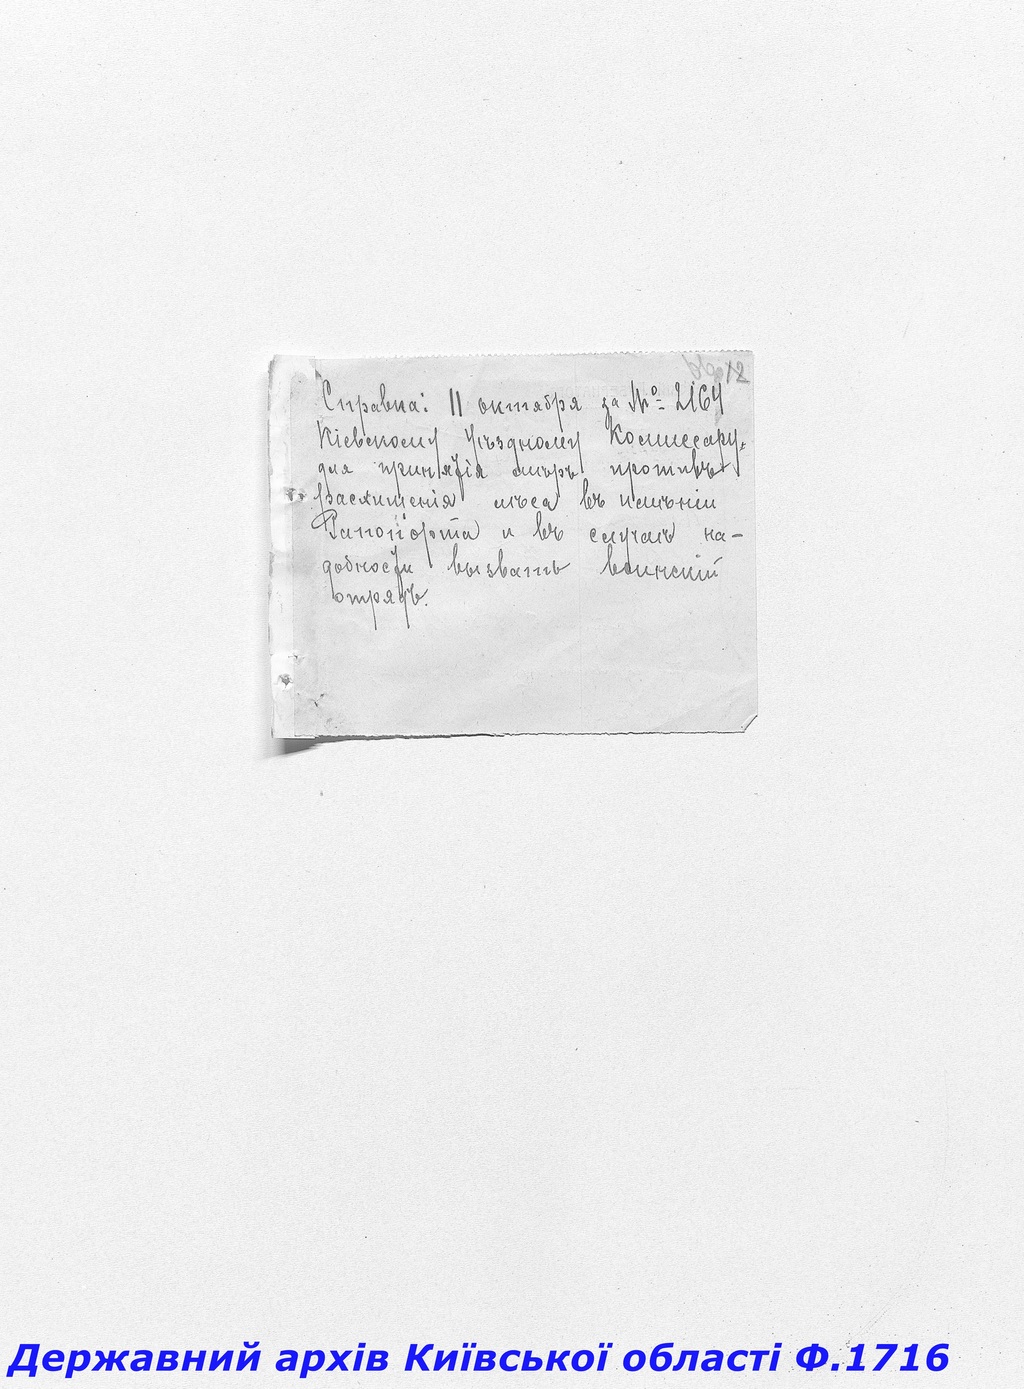 12
Справка: 11 октября за № 2164
Кіевскому Уѣздному Комиссару,
для принятія мѣръ противъ
расхищенія лѣса въ имѣніи
Рапопорта и въ случаѣ на-
добности вызвать воинскій
отрядъ.
Державний архів Київської області Ф.1716